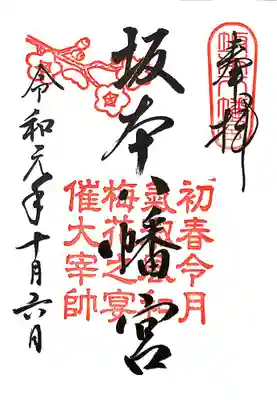 奉拝
坂本八幡宮
初春令月
氣淑風和
梅花之宴
催大宰帥
令和元年十月六日